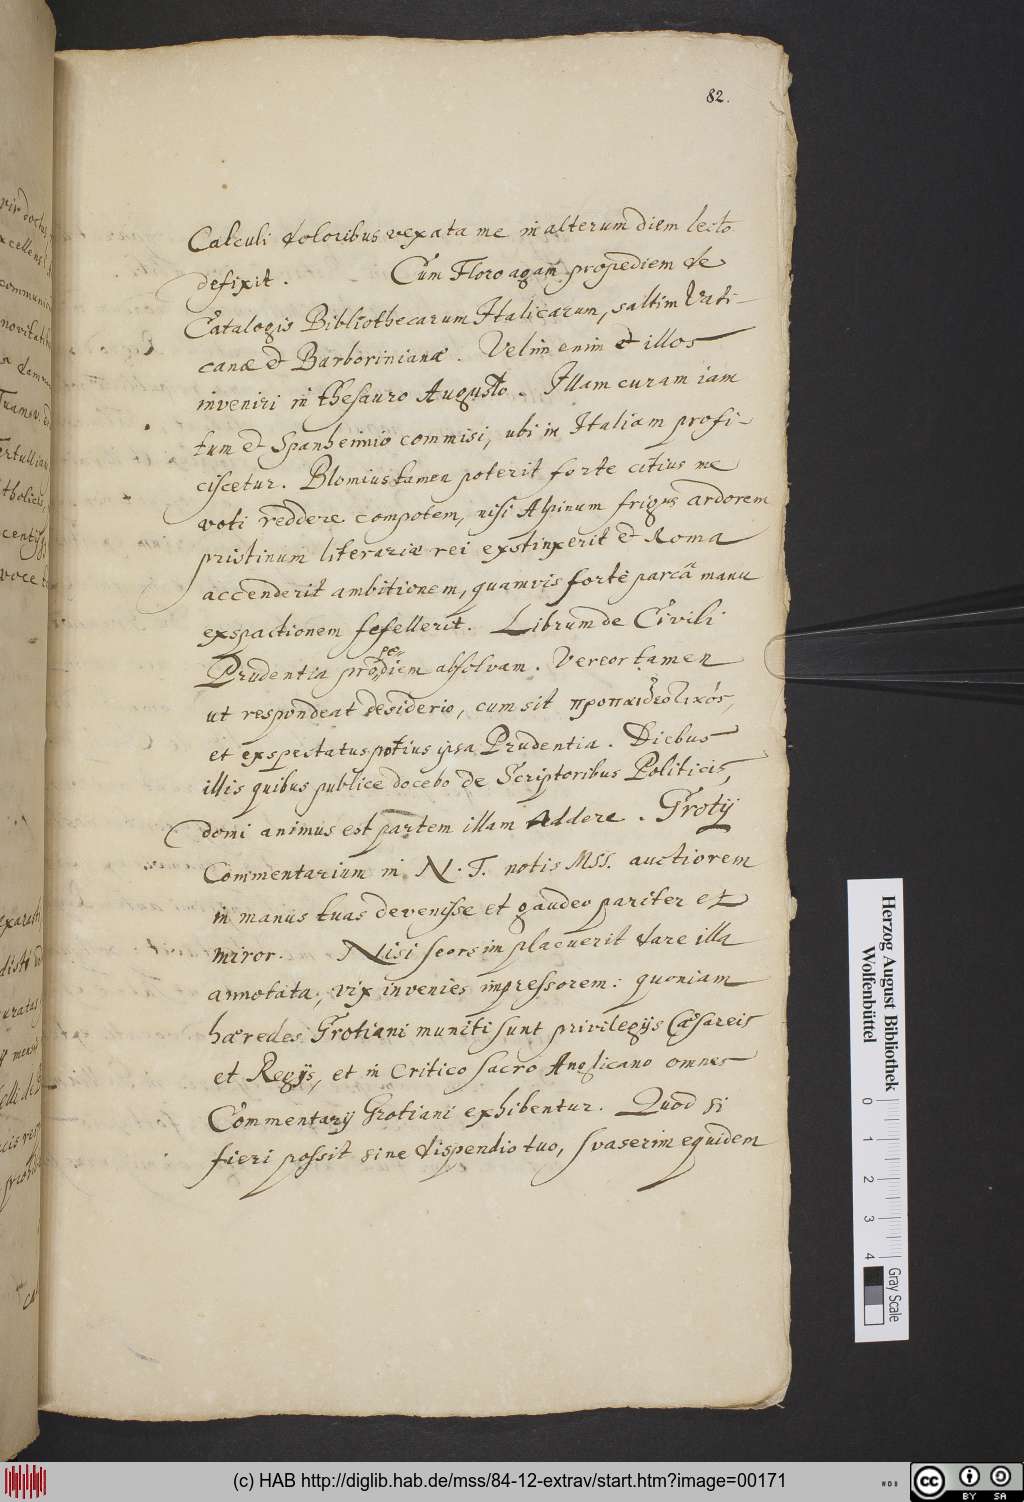 82.
Calculi doloribus vexata me in alterum diem lecto
defixit. Cum Floro agam propediem de
Catalogis Bibliothecarum Italicarum, saltim Vati-
canæ et Barborinianæ. Velim enim et illos
inveniri in thesauro Augusto. Illam curam iam
tum et Spanhemio commisi, ubi in Italiam profi-
cisceretur. Blomius tamen poterit forte citius me
voti reddere compotem, nisi Alpinum frigus ardorem
pristinum literariæ rei exstinxerit et Roma
accenderit ambitionem, quamvis forte parcâ manu
exspactionem fefellerit. Librum de Civili
Prudentia propediem absolvam. Vereor tamen
ut respondeat desiderio, cum sit προπαιδευτικός,
et exspectatus potius ipsa Prudentia. Diebus
illis quibus publice docebo de Scriptoribus Politicis,
domi animus est partem illam addere. Grotij
Commentarium in N. T. notis MSS. auctiorem
in manus tuas devenisse et gaudeo pariter et
miror. Nisi seorsim placuerit dare illa
annotata, vix invenies impressorem: quoniam
hæredes Grotiani muniti sunt privilegijs Cæsareis
et Regijs, et in Critico sacro Anglicano omnes
Commentarij Grotiani exhibentur. Quod si
fieri possit sine dispendio tuo, svaserim equidem
Herzog August Bibliothek
Wolfenbüttel
0 1 2 3 4
Gray Scale
(c) HAB http://diglib.hab.de/mss/84-12-extrav/start.htm?image=00171
cc BY SA